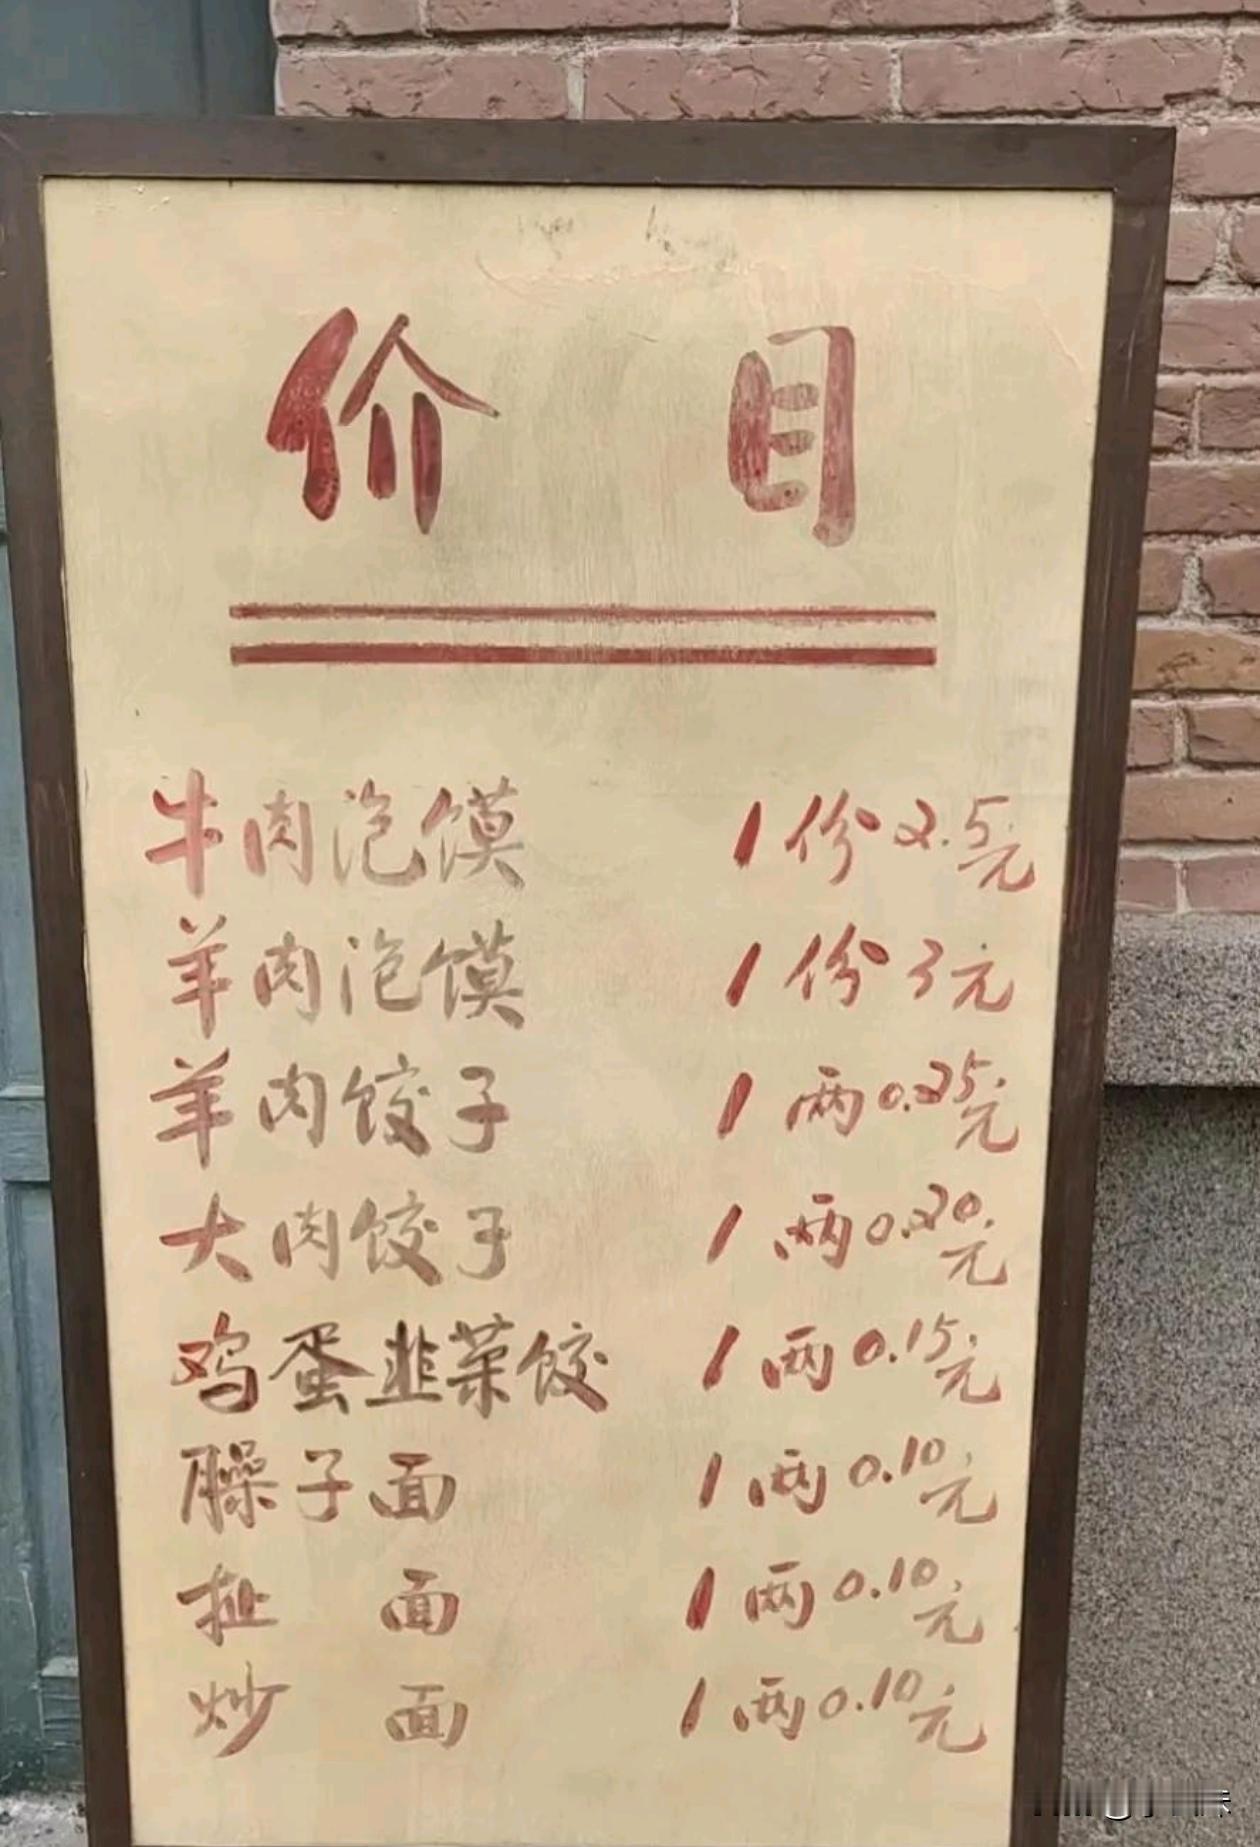 价目
牛肉泡馍 1份2.5元
羊肉泡馍 1份3元
羊肉饺子 1两0.25元
大肉饺子 1两0.20元
鸡蛋韭菜饺 1两0.15元
臊子面 1两0.10元
扯面 1两0.10元
炒面 1两0.10元